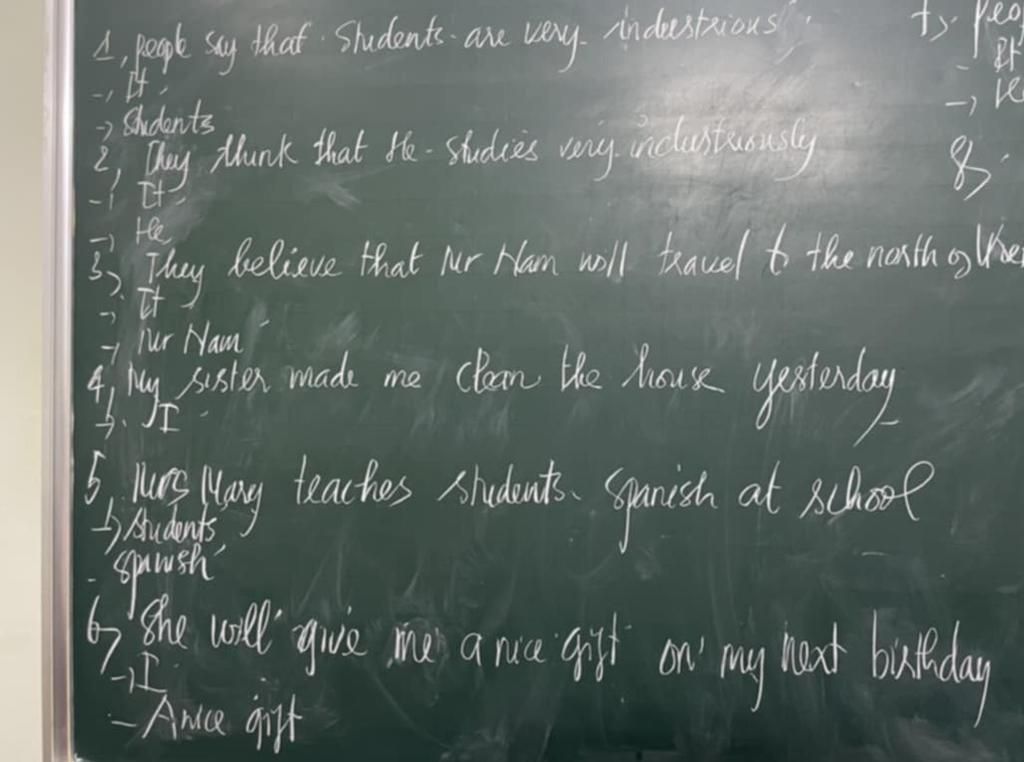 1, people say that students are very industrious
-, It
-> Students
2, They think that He studies very industriously
-, It
-> He
3, They believe that Mr Nam will travel to the north of
-> It
-> Mr Nam
4, My sister made me clean the house yesterday
-> I
5, Mrs Mary teaches students Spanish at school
-> students
- Spanish
6, She will give me a nice gift on my next birthday
-> I
- A nice gift
It
8,